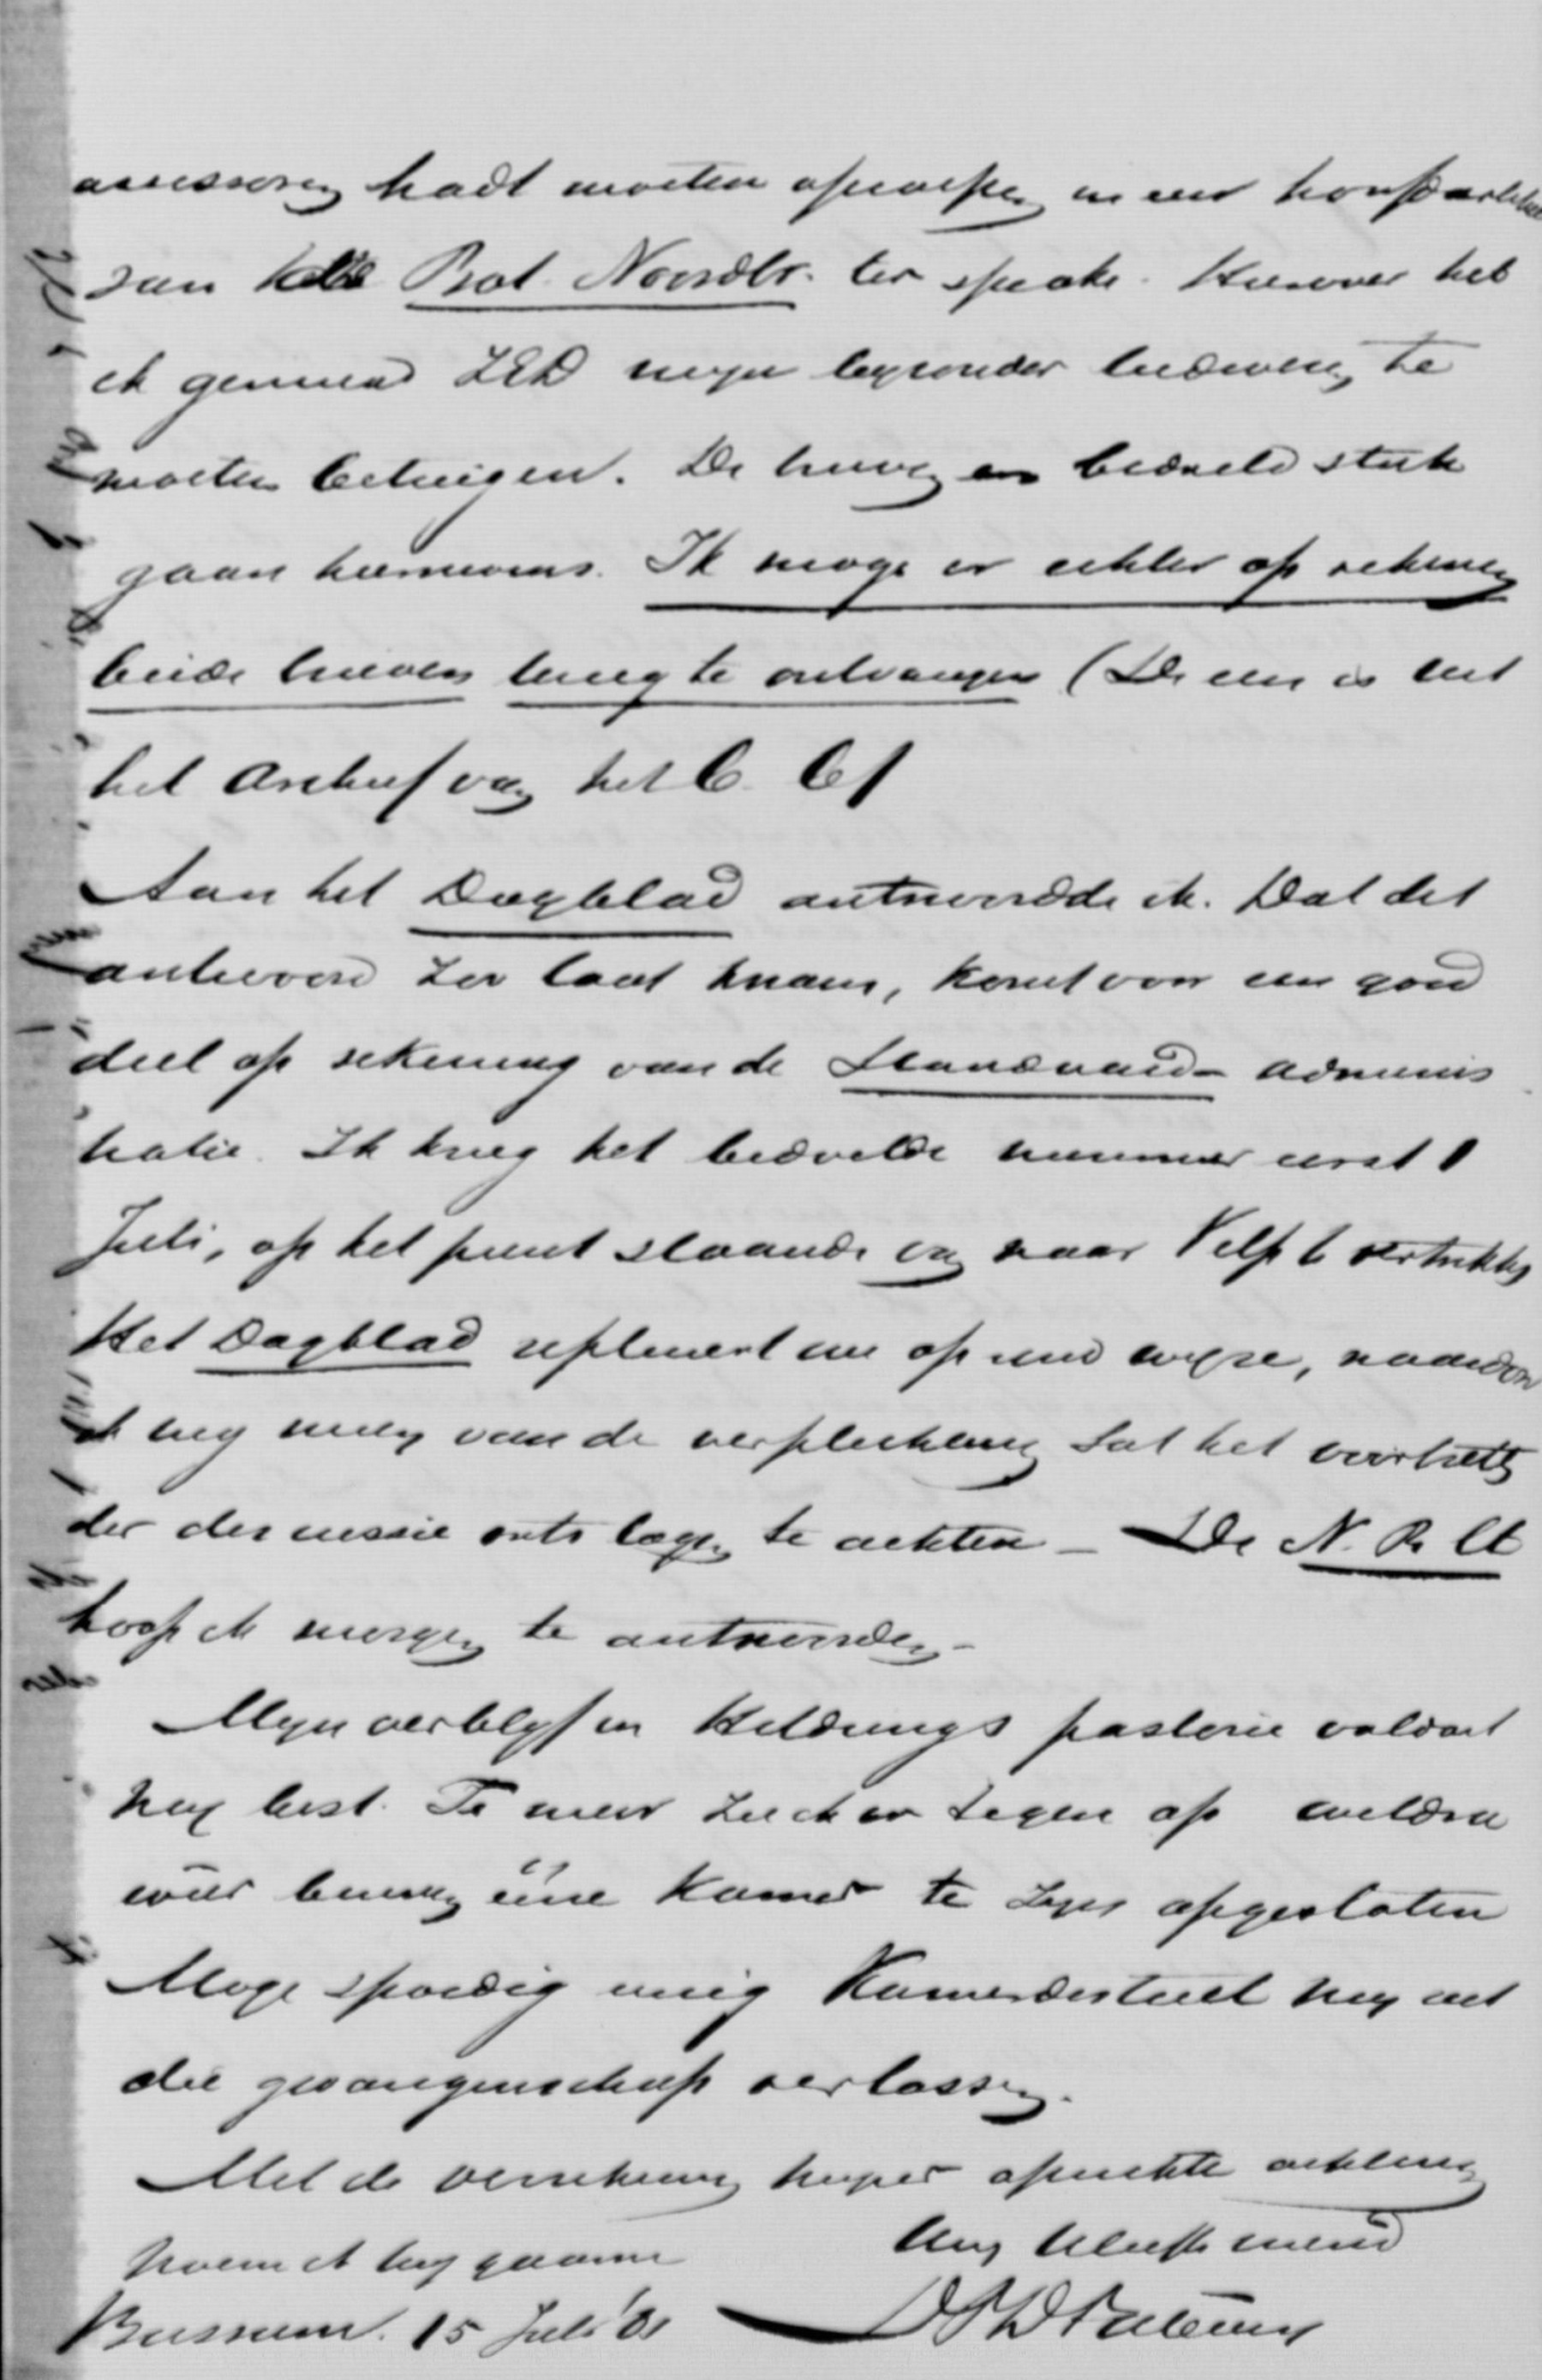 assessoren hadt moeten oproepen in een hoofdartikel
van het Prot. Noordbr. ter sprake. Hierover heb
ik gemeend ZED mijn bijzonder
moeten betuigen. De brieven en bedoeld stuk
gaan hiernevens. Ik moge er echter op rekenen
beide brieven terug te ontvangen (De een is uit
het Archief van het C. C)
Aan het Dagblad antwoordde ik. Dat dit
antwoord zoo laat kwam, komt voor een goed
deel op rekening van de Standaard-adminis
tratie. Ik kreeg het bedoelde nummer eerst 1
Juli, op het punt staande om naar Velp te vertrekken
Het Dagblad repliceert nu op een wijze, waardoor
ik mij meen van de verplichting tot het voortzetten
der discussie ontslagen te achten – De N. R. Ct
hoop ik morgen te antwoorden –
Mijn verblijf in Heldrings pastorie voldoet
mij best. Te meer zie ik er tegen op weldra
weer binnen ééne kamer te zijn opgesloten
Moge spoedig eenig Kamerdistrict mij uit
die gevangenschap verlossen.
Met de verzekering mijner oprechte achting
noem ik mij gaarne Uw medestr.
Bussum. 15 Juli '81